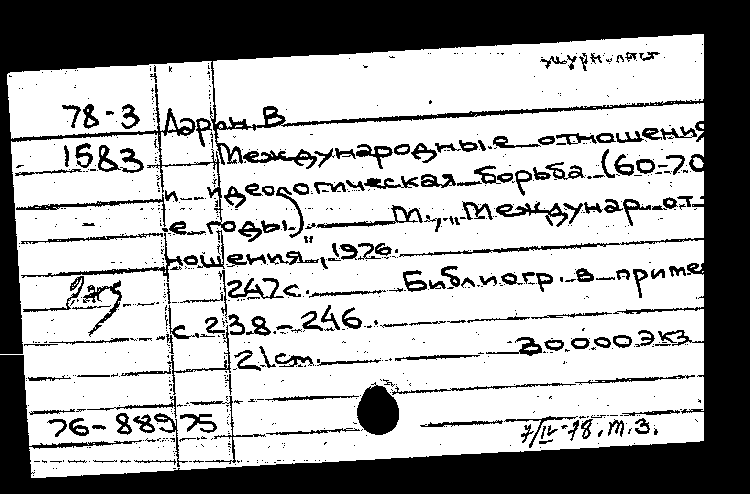 журналист
78-3 Ларин, В
1583 Международные отношения
и идеологическая борьба (60-70
е годы). М., „Междунар. от-
ношения", 1976.
247с. Библиогр. в приме
с. 238-246.
21 cm. 30000 экз
76-88975
7/IV-78. т.з.